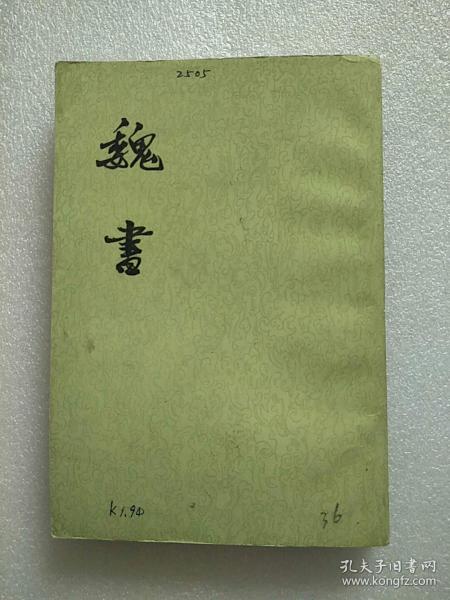 2505
魏
書
36
孔夫子旧书网
www.kongfz.com